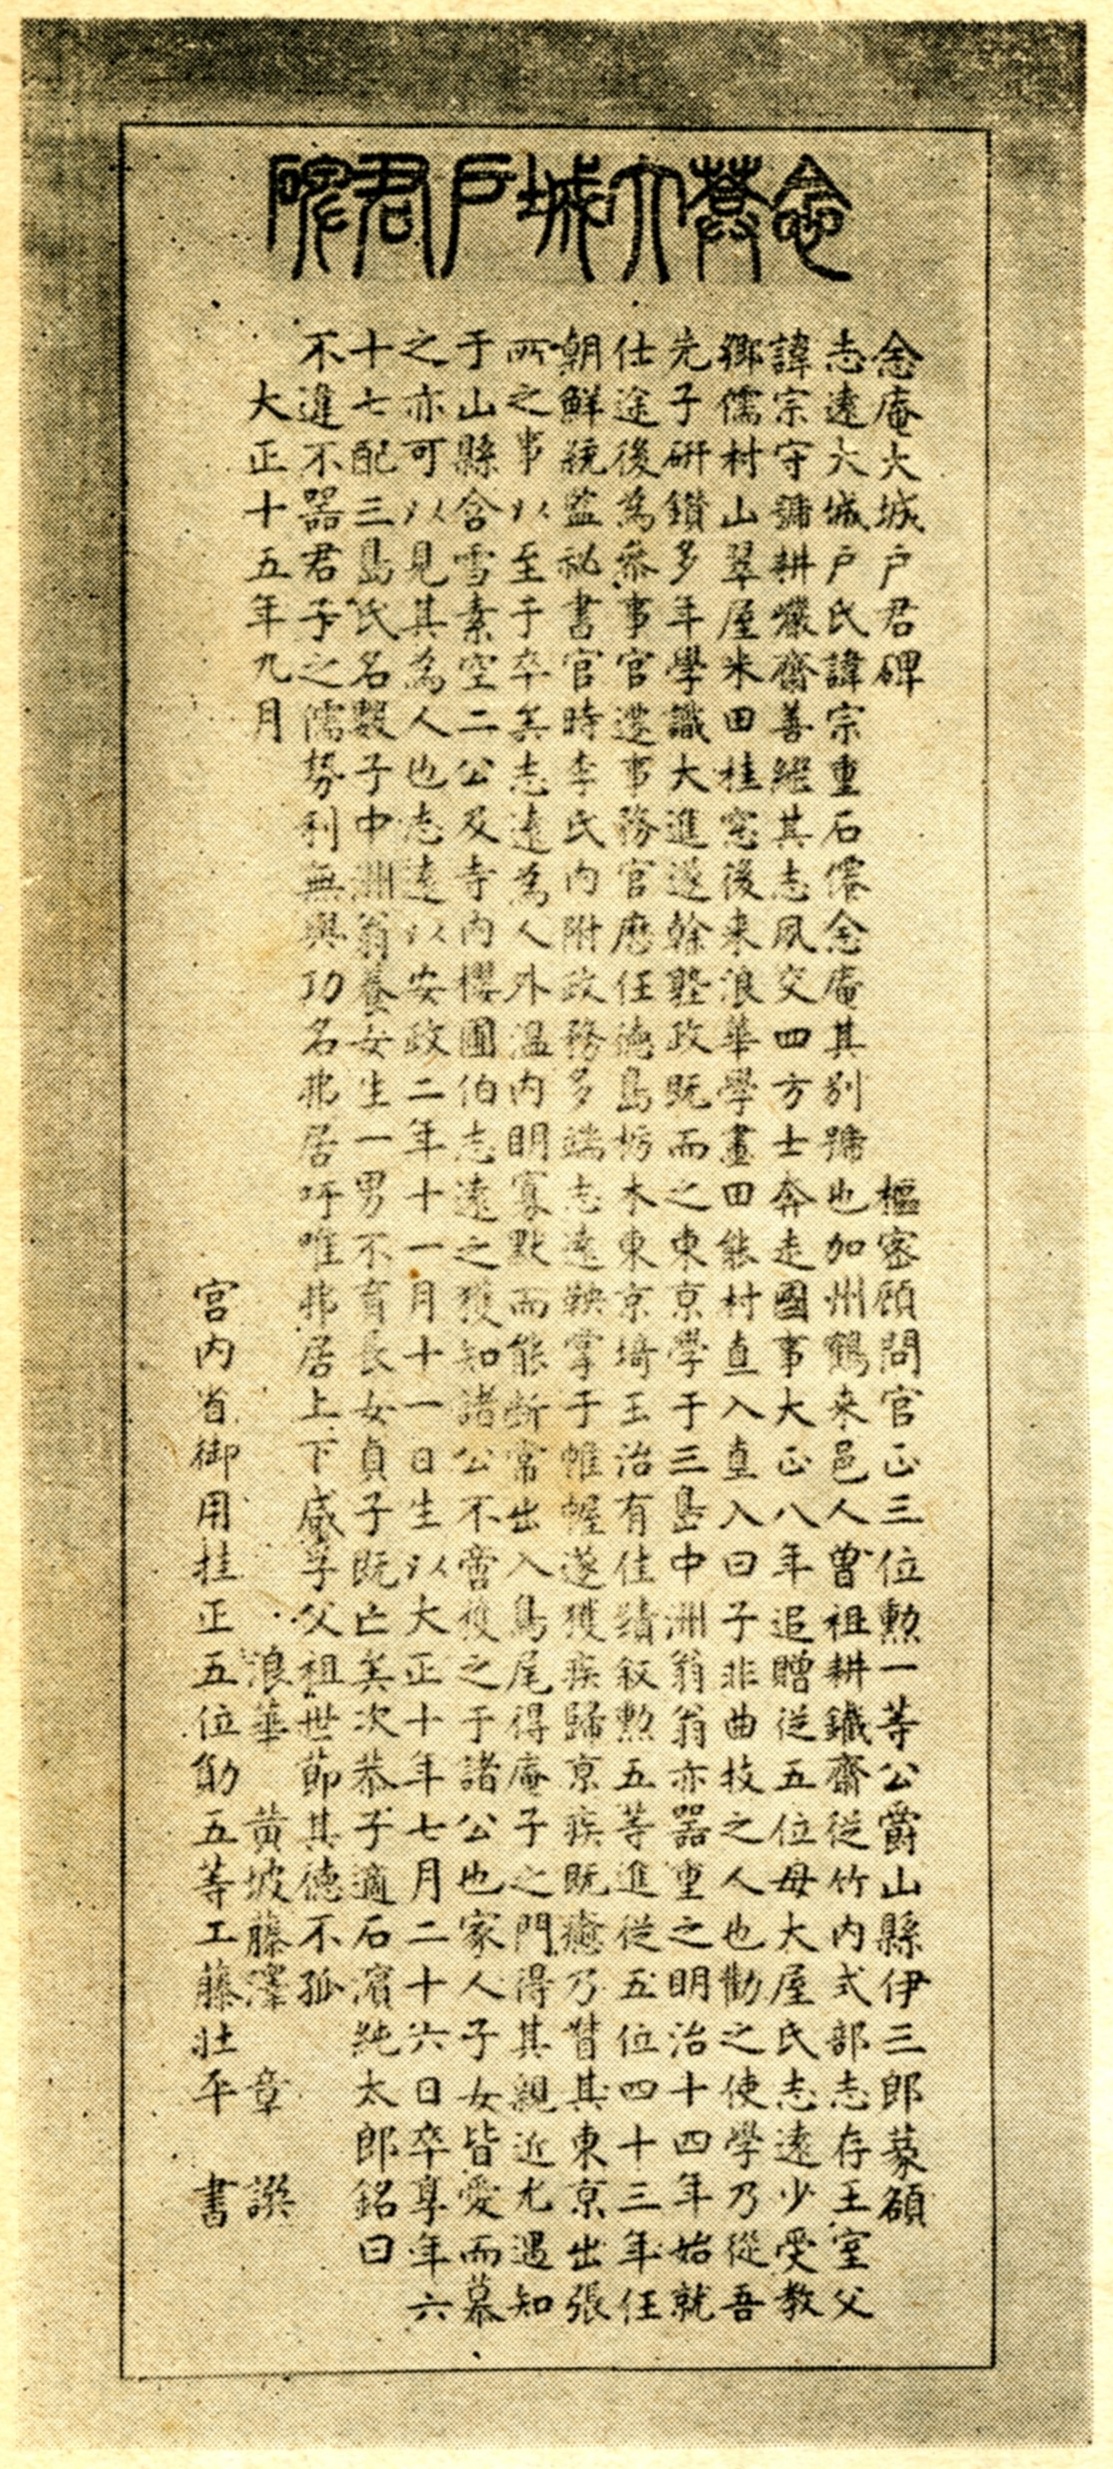 念菴大城戸君碑
念庵大城戸君碑 樞密顧問官正三位勲一等公爵山縣伊三郎篆額
志遠大城戸氏諱宗重石僊念庵其別號也加州鶴来邑人曽祖耕鐡齋従竹内式部志存王室父
諱宗守號耕癡齋善継其志夙交四方士奔走國事大正八年追贈従五位母大屋氏志遠少受教
郷儒村山翠屋米田桂窓後来浪華學畫田能村直入直入曰子非曲技之人也勸之使學乃從吾
先子研鑽多年學識大進遂幹塾政既而之東京学于三島中洲翁翁亦器重之明治十四年始就
仕途後為参事官遷事務官歴任徳島栃木東京埼玉治有佳績叙勲五等進従五位四十三年任
朝鮮統監祕書官時李氏内附政務多端志遠鞅掌于帷幄遂獲疾歸京疾既癒乃督其東京出張
所之事以至于卒矣志遠為人外温内明寡黙而能断常出入鳥尾得庵子之門得其親近尤遇知
于山縣含雪素空二公及寺内櫻圃伯志遠之獲知諸公不啻獲之于諸公也家人子女皆愛而慕
之亦可以見其為人也志遠以安政二年十一月十一日生以大正十年七月二十六日卒享年六
十七配三島氏名數子中洲翁養女生一男不育長女貞子既亡矣次恭子適石濱純太郎銘曰
不進不器君子之儒勢利無與功名弗居吁唯弗居上下咸孚父祖世節其徳不孤
大正十五年九月 浪華 黄坡藤澤 章 譔
宮内省御用掛正五位勛五等工藤壯平 書